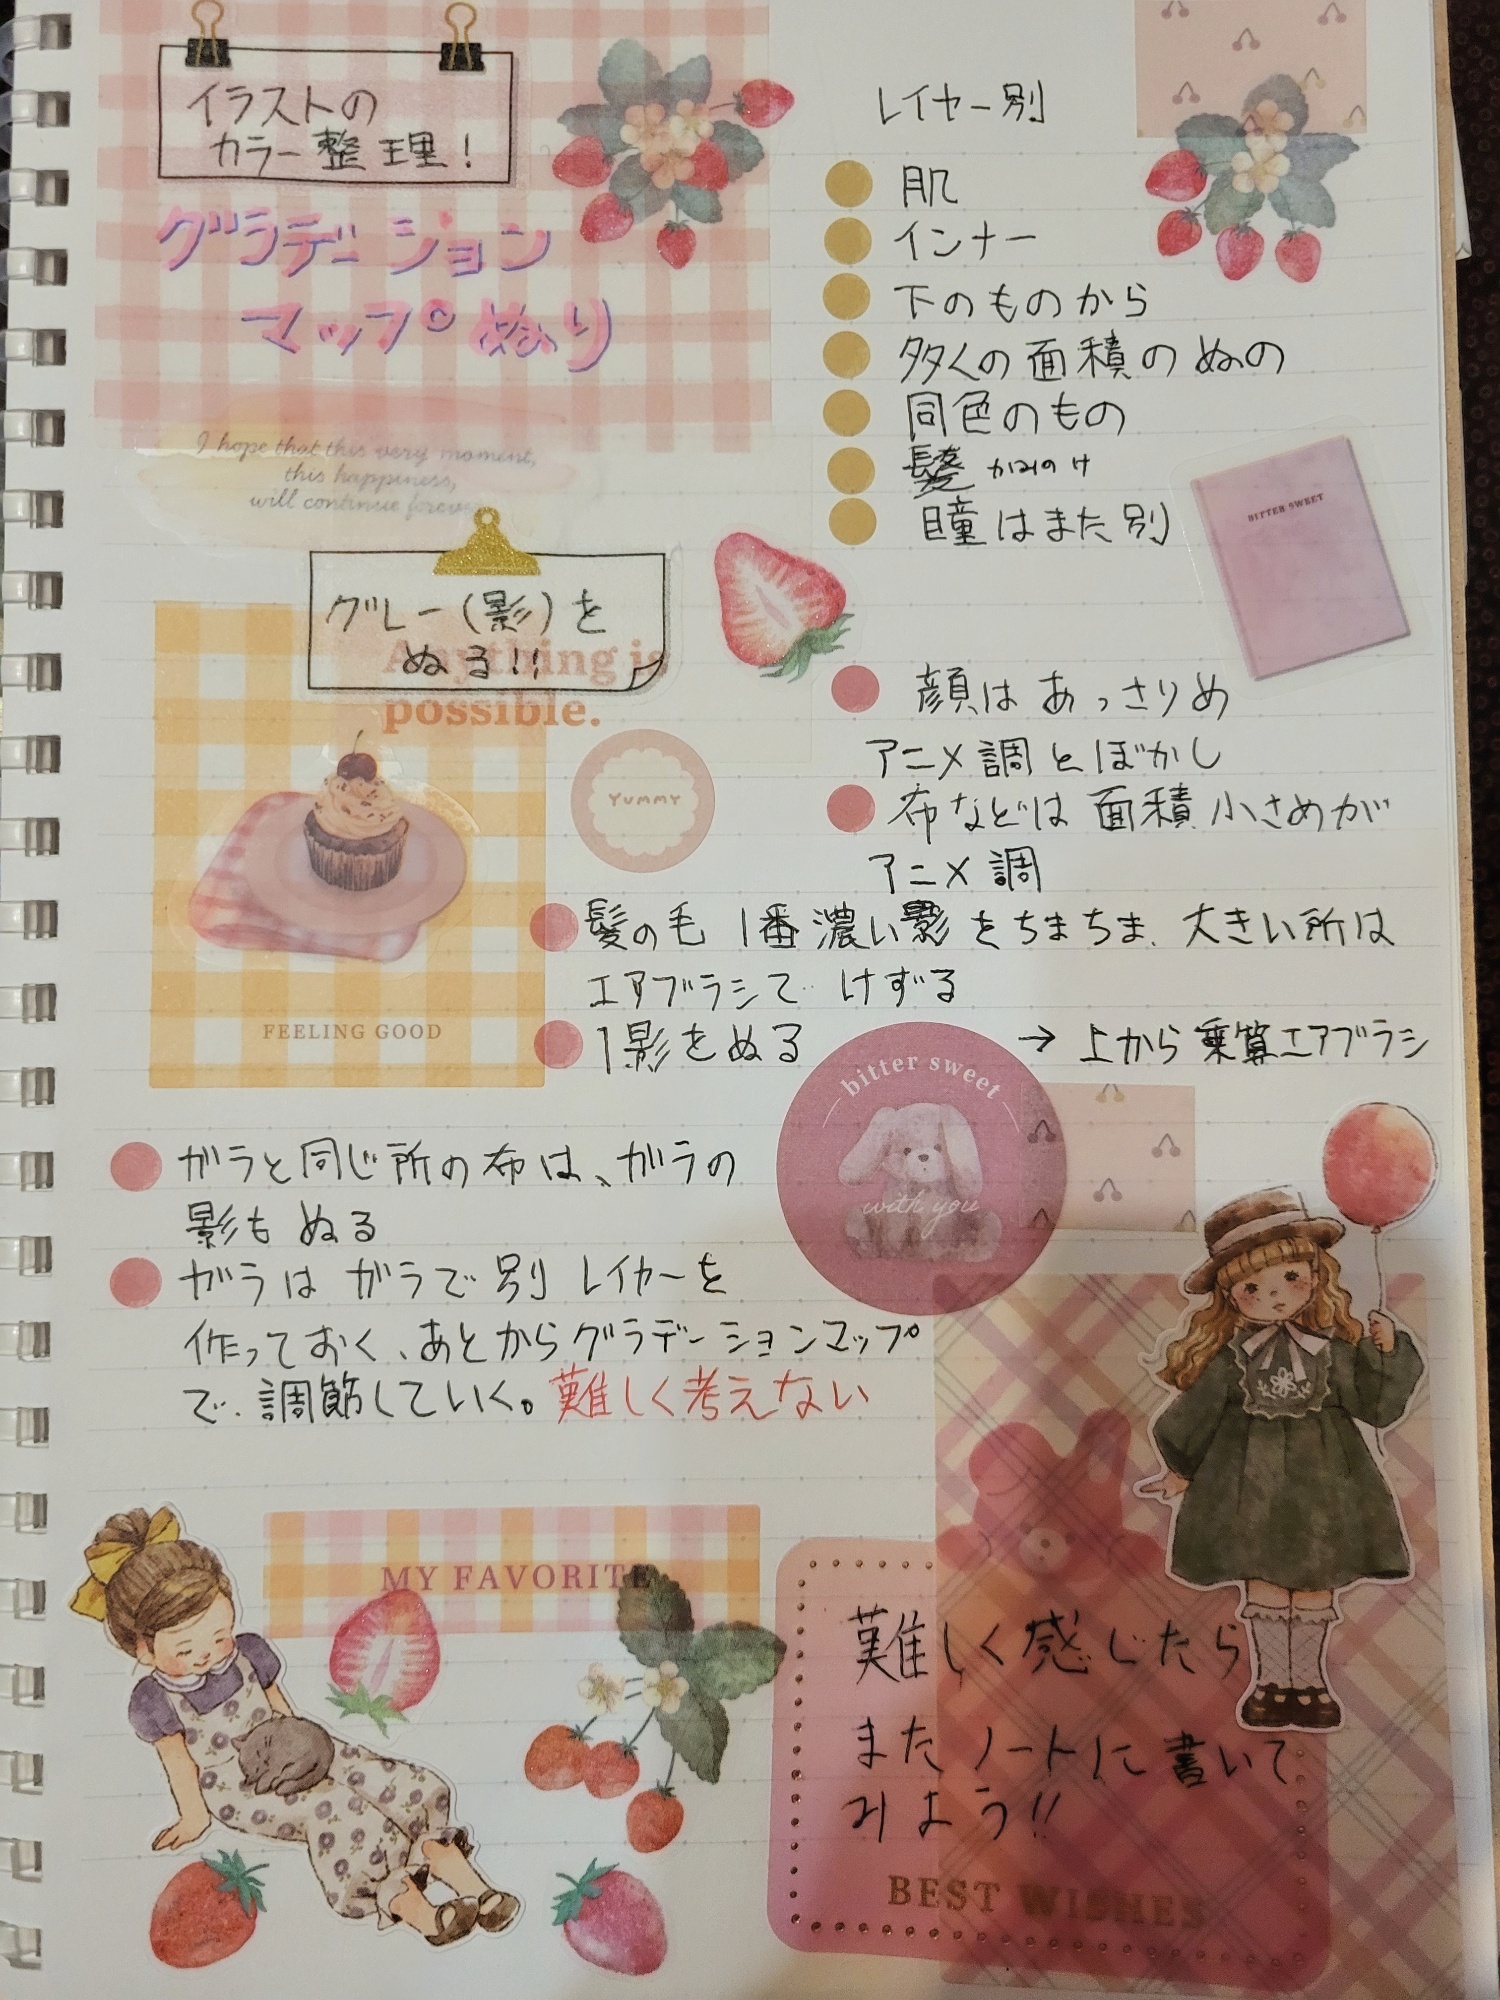 イラストの
カラー整理!
グラデーション
マップぬり
I hope that this very moment,
this happiness,
will continue forever
レイヤー別
肌
インナー
下のものから
多くの面積のぬの
同色のもの
髪 かみのけ
瞳はまた別
BITTER SWEET
グレー(影)を
ぬる!!
Anything is
possible.
YUMMY
FEELING GOOD
顔はあっさりめ
アニメ調とぼかし
布などは面積小さめが
アニメ調
髪の毛 1番濃い影をちまちま、大きい所は
エアブラシで けずる
1影をぬる → 上から乗算エアブラシ
bitter sweet
with you
ガラと同じ所の布は、ガラの
影もぬる
ガラはガラで別レイヤーを
作っておく、あとからグラデーションマップ
で、調節していく。難しく考えない
MY FAVORITE
難しく感じたら
またノートに書いて
みよう!!
BEST WISHES